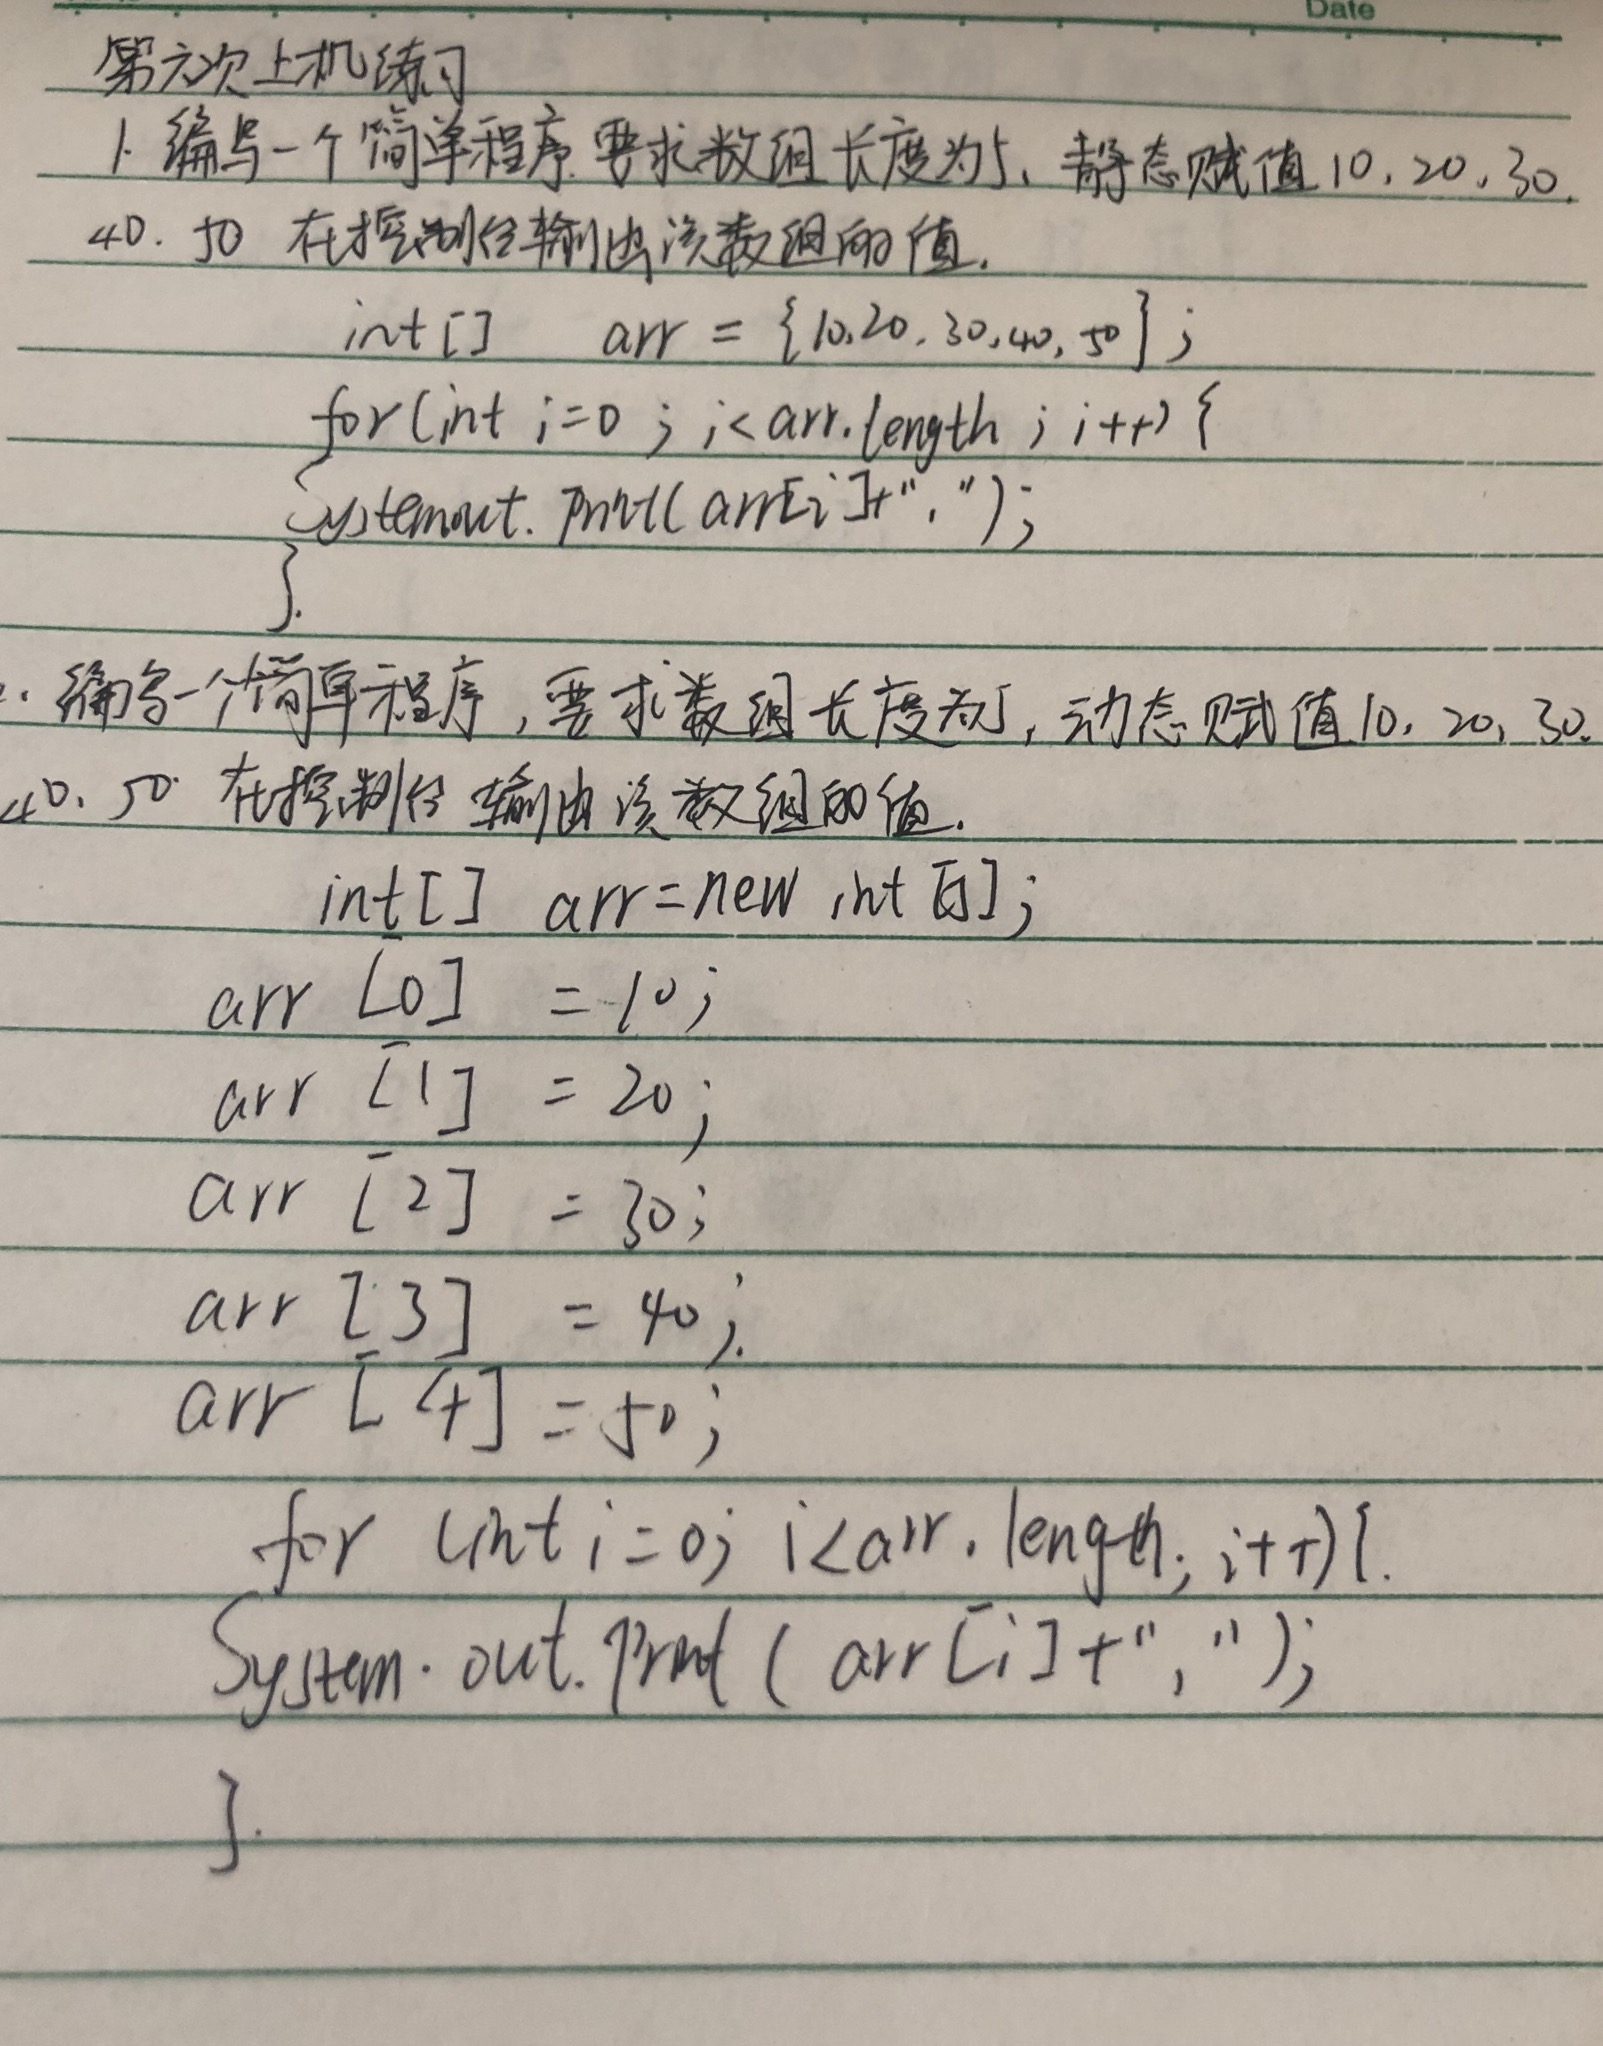 Date
第六次上机练习
1. 编写一个简单程序.要求数组长度为5、静态赋值10,20,30.
40. 50 在控制台输出该数组的值.
int[] arr = {10,20,30,40,50};
for(int i=0; i<arr.length; i++){
Systemout.print(arr[i]+",");
}.
2. 编写一个简单程序,要求数组长度为5,动态赋值10, 20, 30.
40. 50 在控制台输出该数组的值.
int[] arr=new int[5];
arr [0] =10;
arr [1] = 20;
arr [2] = 30;
arr [3] = 40;
arr [4] = 50;
for (int i=0; i<arr.length; i++){.
System.out.print(arr[i]+",");
}.